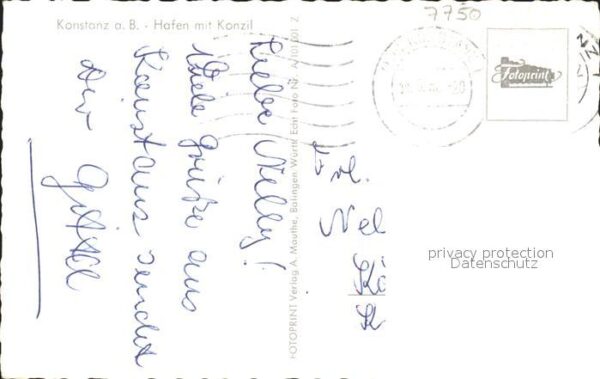 7750
Konstanz a. B. - Hafen mit Konzil
Liebe Nelly!
Viele Grüße aus
Konstanz sendet
Dir
FOTOPRINT Verlag A. Mauthe, Balingen Württ Echt Foto Nr.
Fotoprint
Frl.
Nel
Kö
privacy protection
Datenschutz